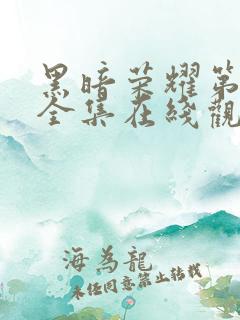 黑暗荣耀第
全集在线觀
海為龍
未经同意禁止转载